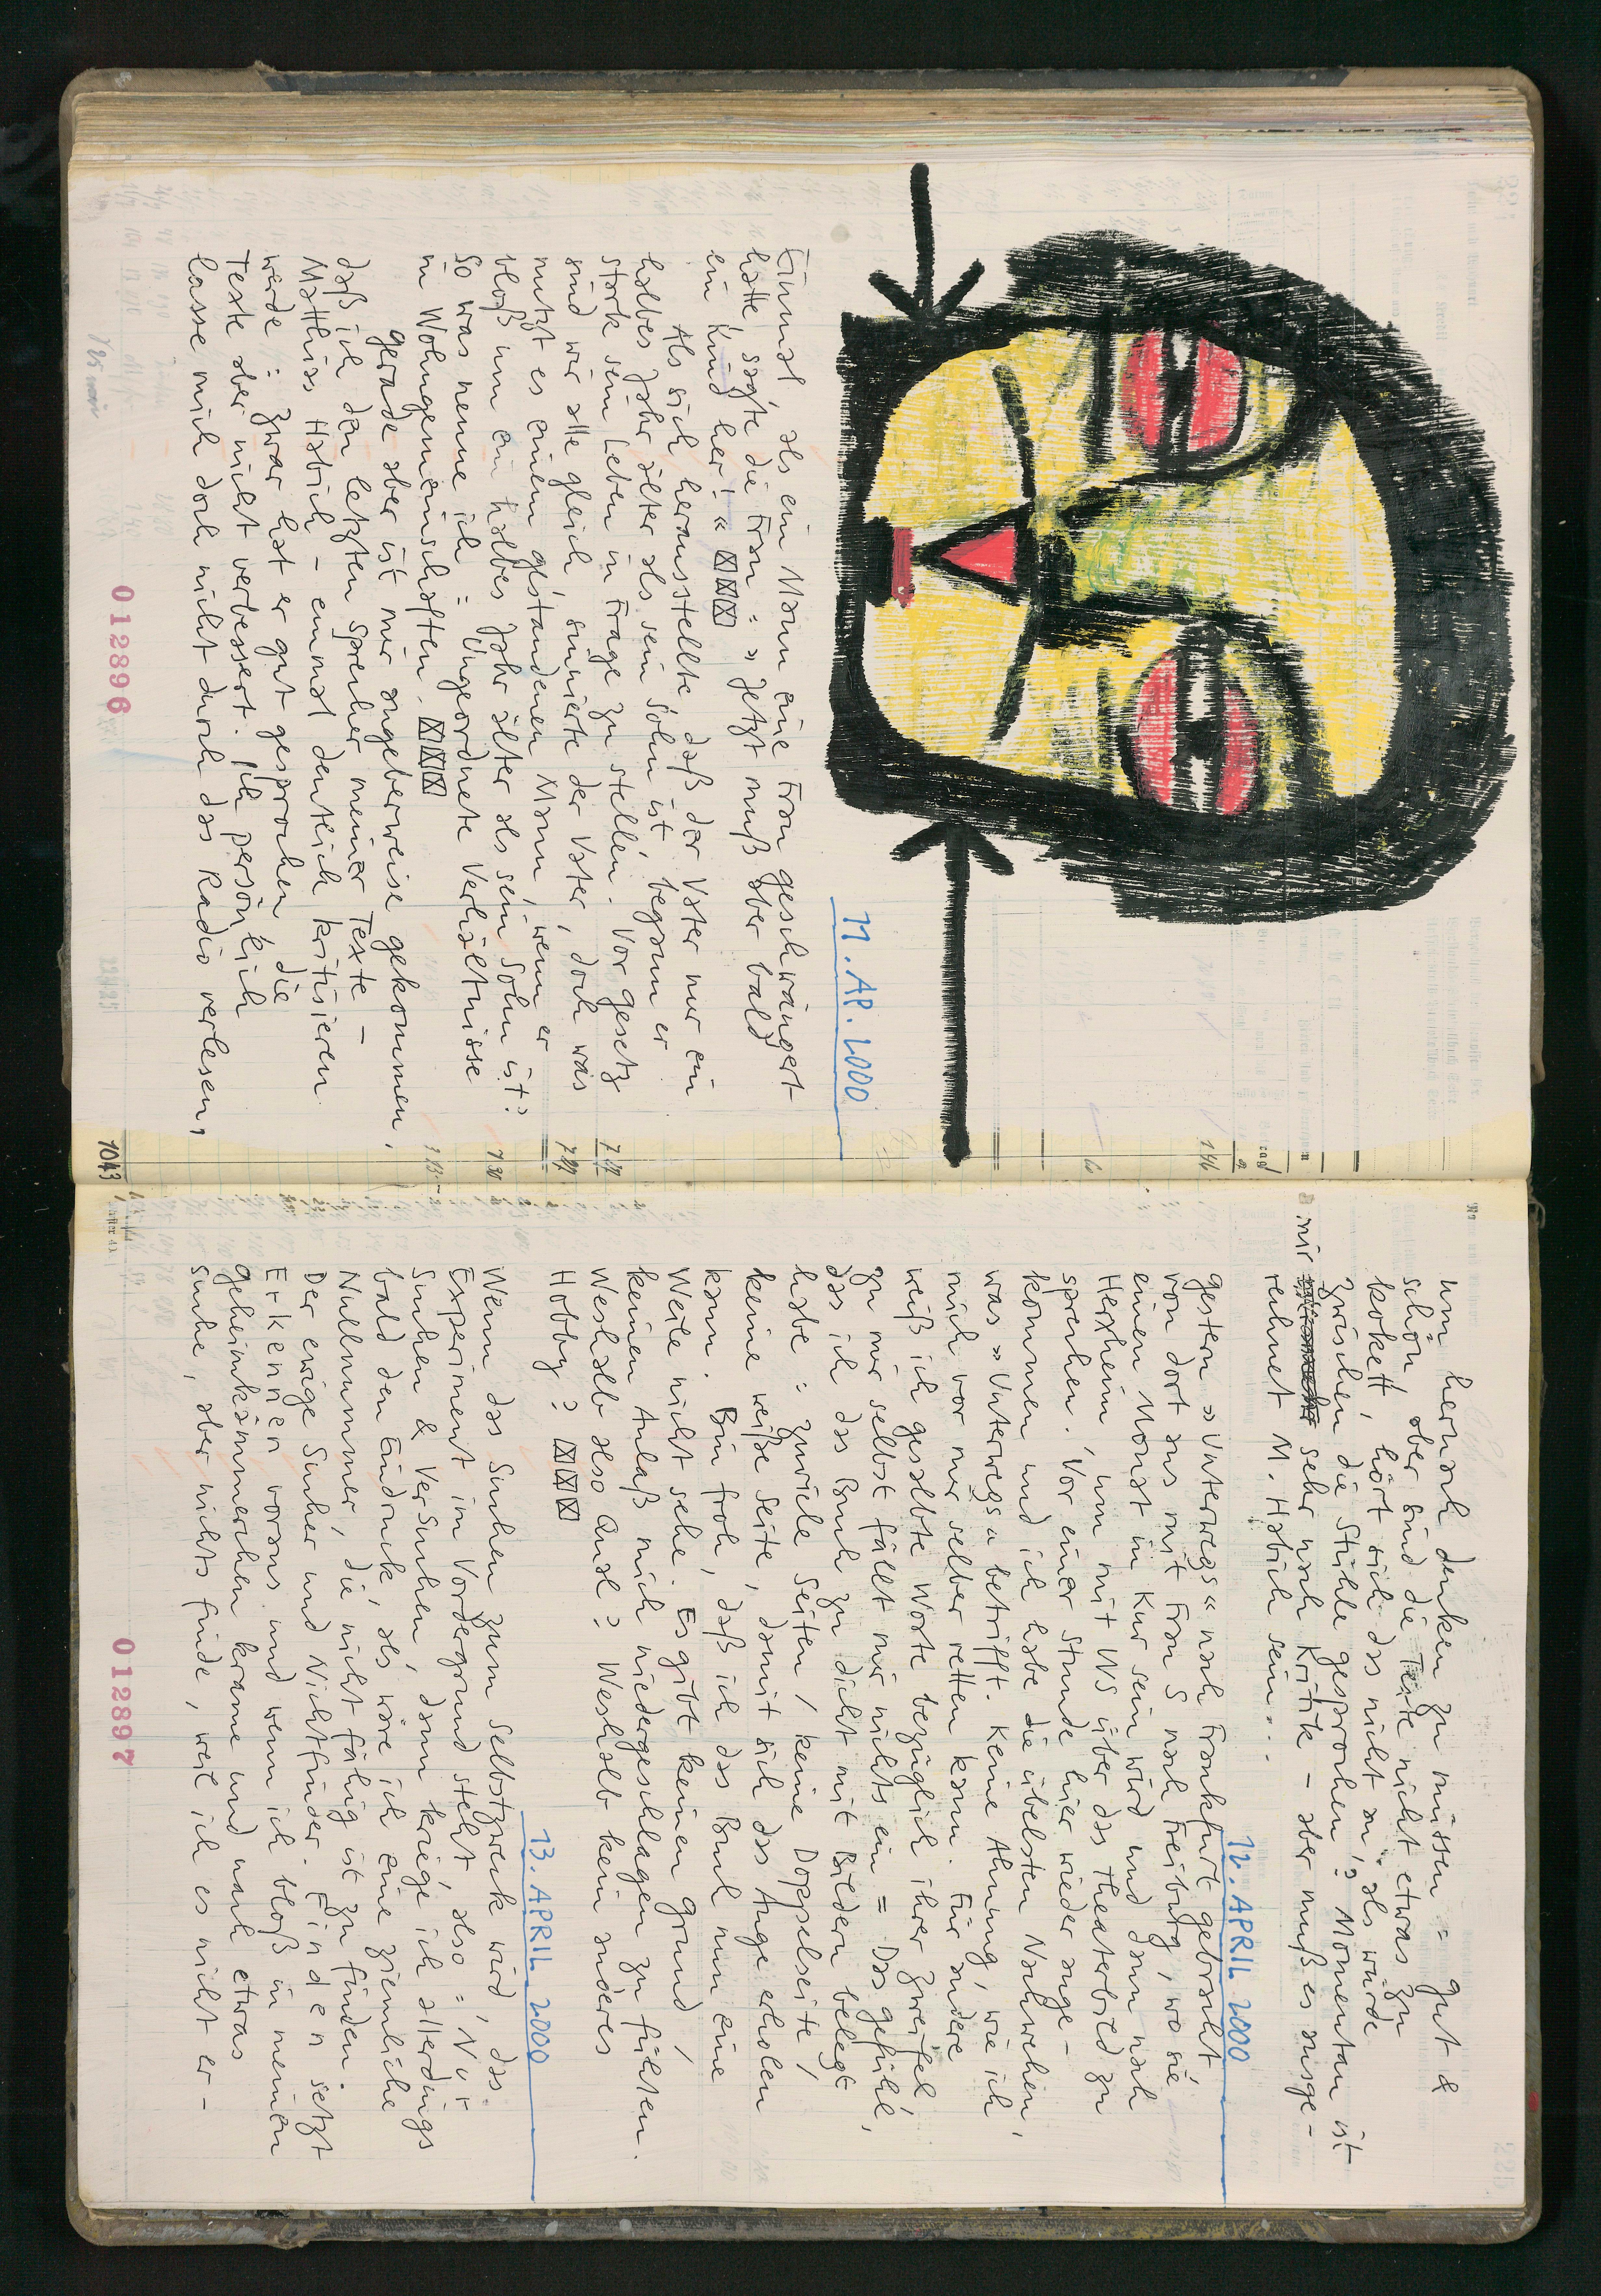 11. AP. 2000
Einmal, als ein Mann eine Frau geschwängert
hatte, sagte die Frau : » Jetzt muß aber bald
ein Kind her ! «
Als sich herausstellte, daß der Vater nur ein
halbes Jahr älter als sein Sohn ist, begann er
stark sein Leben in Frage zu stellen. Vor Gesetz
sind wir alle gleich, sinnierte der Vater, doch was
nutzt es einem gestandenen Mann, wenn er
bloß um ein halbes Jahr älter als sein Sohn ist ?
So was nenne ich : Ungeordnete Verhältnisse
in Wohngemeinschaften.
Gerade aber ist mir angeberweise gekommen,
daß ich den letzten Sprecher meiner Texte –
Matthias Habich – einmal deutlich kritisieren
werde : Zwar hat er gut gesprochen die
Texte aber nicht verbessert. Ich persönlich
lasse mich doch nicht durch das Radio verlesen,
012896
1043
um hernach denken zu müssen : gut &
schön aber sind die Texte nicht etwas zu
kokett, hört sich das nicht an, als würde
zwischen die Stühle gesprochen ? Momentan ist
mir sehr nach Kritik – aber muß es ausge-
rechnet M. Habich sein...
12. APRIL 2000
Gestern » Unterwegs « nach Frankfurt gebracht
von dort aus mit Frau S nach Freiburg, wo sie
einen Monat in Kur sein wird und dann nach
Herxheim, um mit WS über das Theaterbild zu
sprechen. Vor einer Stunde hier wieder ange-
kommen und ich habe die übelsten Nachwehen,
was » Unterwegs « betrifft. Keine Ahnung, wie ich
mich vor mir selber retten kann. Für andere
weiß ich gesalbte Worte bezüglich ihrer Zweifel,
zu mir selbst fällt mir nichts ein : Das Gefühl,
das ich das Buch zu dicht mit Bildern belegt
habe : Zuviele Seiten / keine Doppelseite /
keine weiße Seite, damit sich das Auge erholen
kann. Bin froh, daß ich das Buch nun eine
Weile nicht sehe. Es gibt keinen Grund /
keinen Anlaß mich niedergeschlagen zu fühlen.
Weshalb also Qual ? Weshalb kein anderes
Hobby ?
13. APRIL 2000
Wenn das Suchen zum Selbstzweck wird, das
Experiment im Vordergrund steht, also : Nur
Suchen & Versuchen, dann kriege ich allerdings
bald den Eindruck, als wäre ich eine ziemliche
Nullnummer, die nicht fähig ist zu finden.
Der ewige Sucher und Nichtfinder. Finden setzt
Erkennen voraus und wenn ich bloß in meinen
Geheimkämmerchen krame und nach etwas
suche, aber nichts finde, weil ich es nicht er-
012897